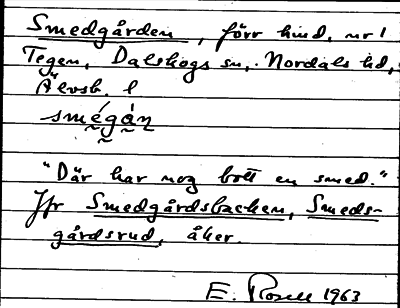 Smedgården, förr hmd, nr 1
Tegen, Dalskogs sn, Nordals hd,
Älvsb. l
smégàn
"Där har nog bott en smed."
Jfr Smedgårdsbacken, Smeds-
gårdsrud, åker.
E. Rosell 1963